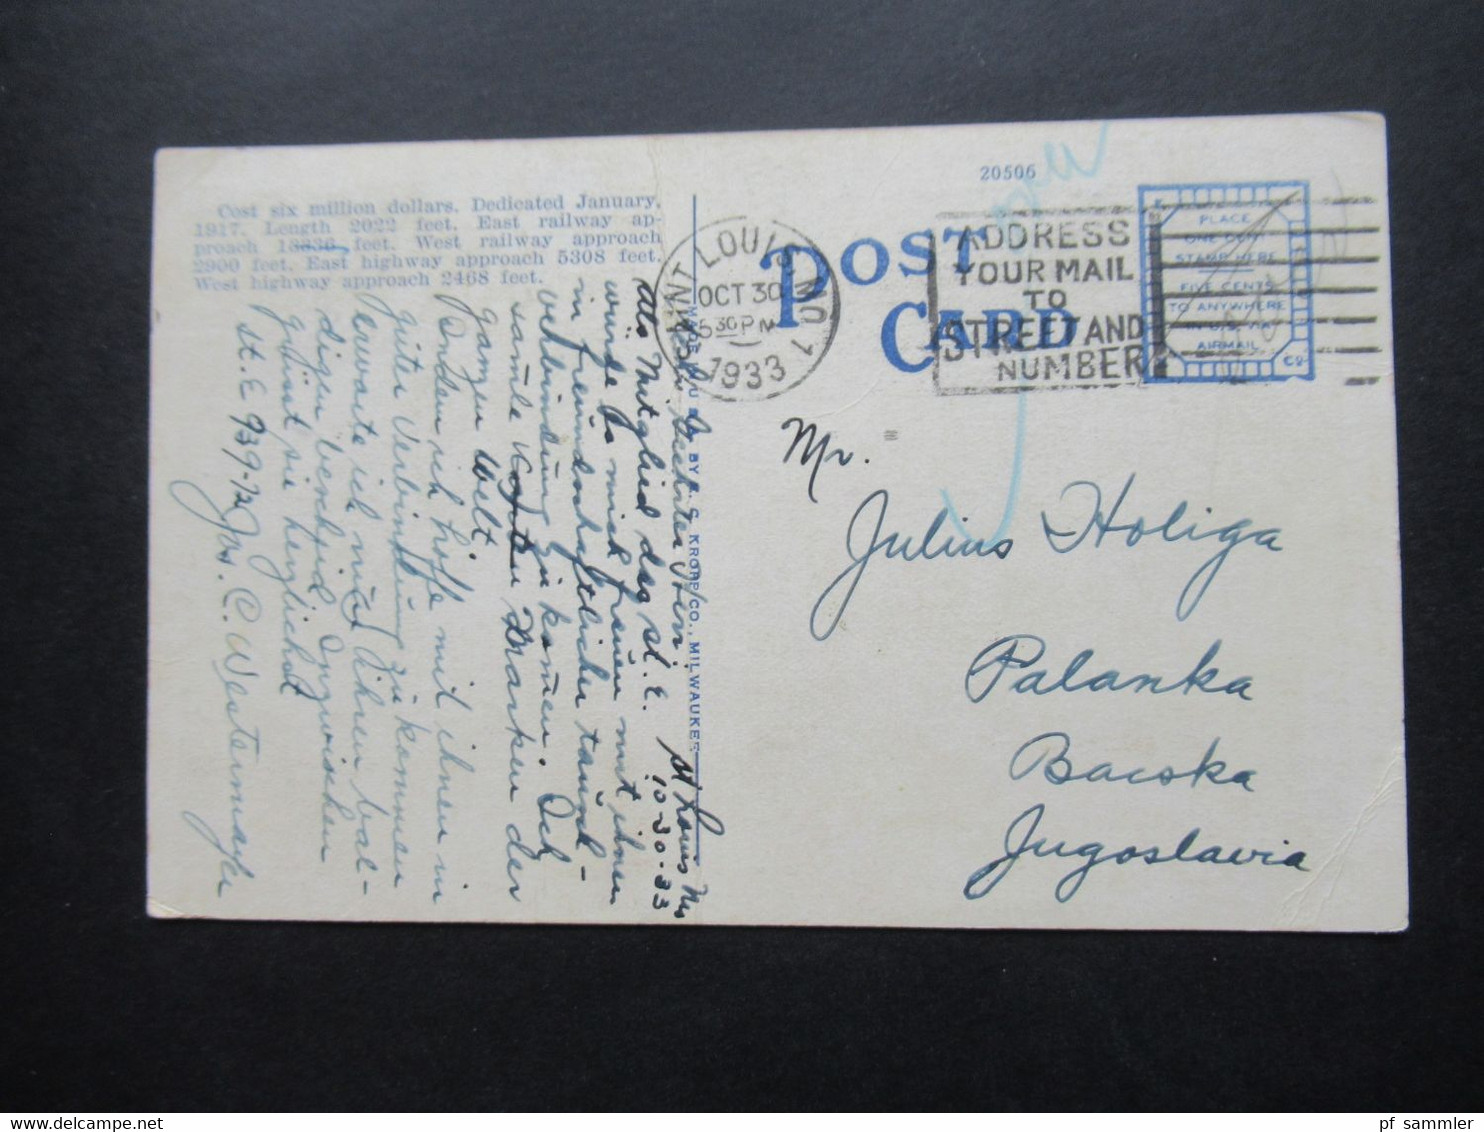 20506
Cost six million dollars. Dedicated January,
1917. Length 2022 feet. East railway ap-
proach 18336 feet. West railway approach
2900 feet. East highway approach 5308 feet.
West highway approach 2468 feet.
POST CARD
SAINT LOUIS, MO. 1
OCT 30
5 30 PM
1933
ADDRESS
YOUR MAIL
TO
STREET AND
NUMBER
PLACE
ONE CENT
STAMP HERE
FIVE CENTS
TO ANYWHERE
IN U.S. VIA
AIRMAIL
BY E. C. KROPP CO., MILWAUKEE
St Louis Mo
10-30-33
Als Mitglied des St. E.
würde es mich freuen mit ihnen
in freundschaftlicher tausch-
verbindung zu komen. Ich
samle Marken der
ganzen Welt.
ich hoffe mit ihnen in
guter Verbindung zu kommen
erwarte ich von ihnen bal-
digen bescheid Inzwischen
grüsst sie herzlichst
Jos. C. Westermayer
St. E 939-12
Mr.
Julius Holiga
Palanka
Bacska
Jugoslavia
pf_sammler
www.delcampe.net